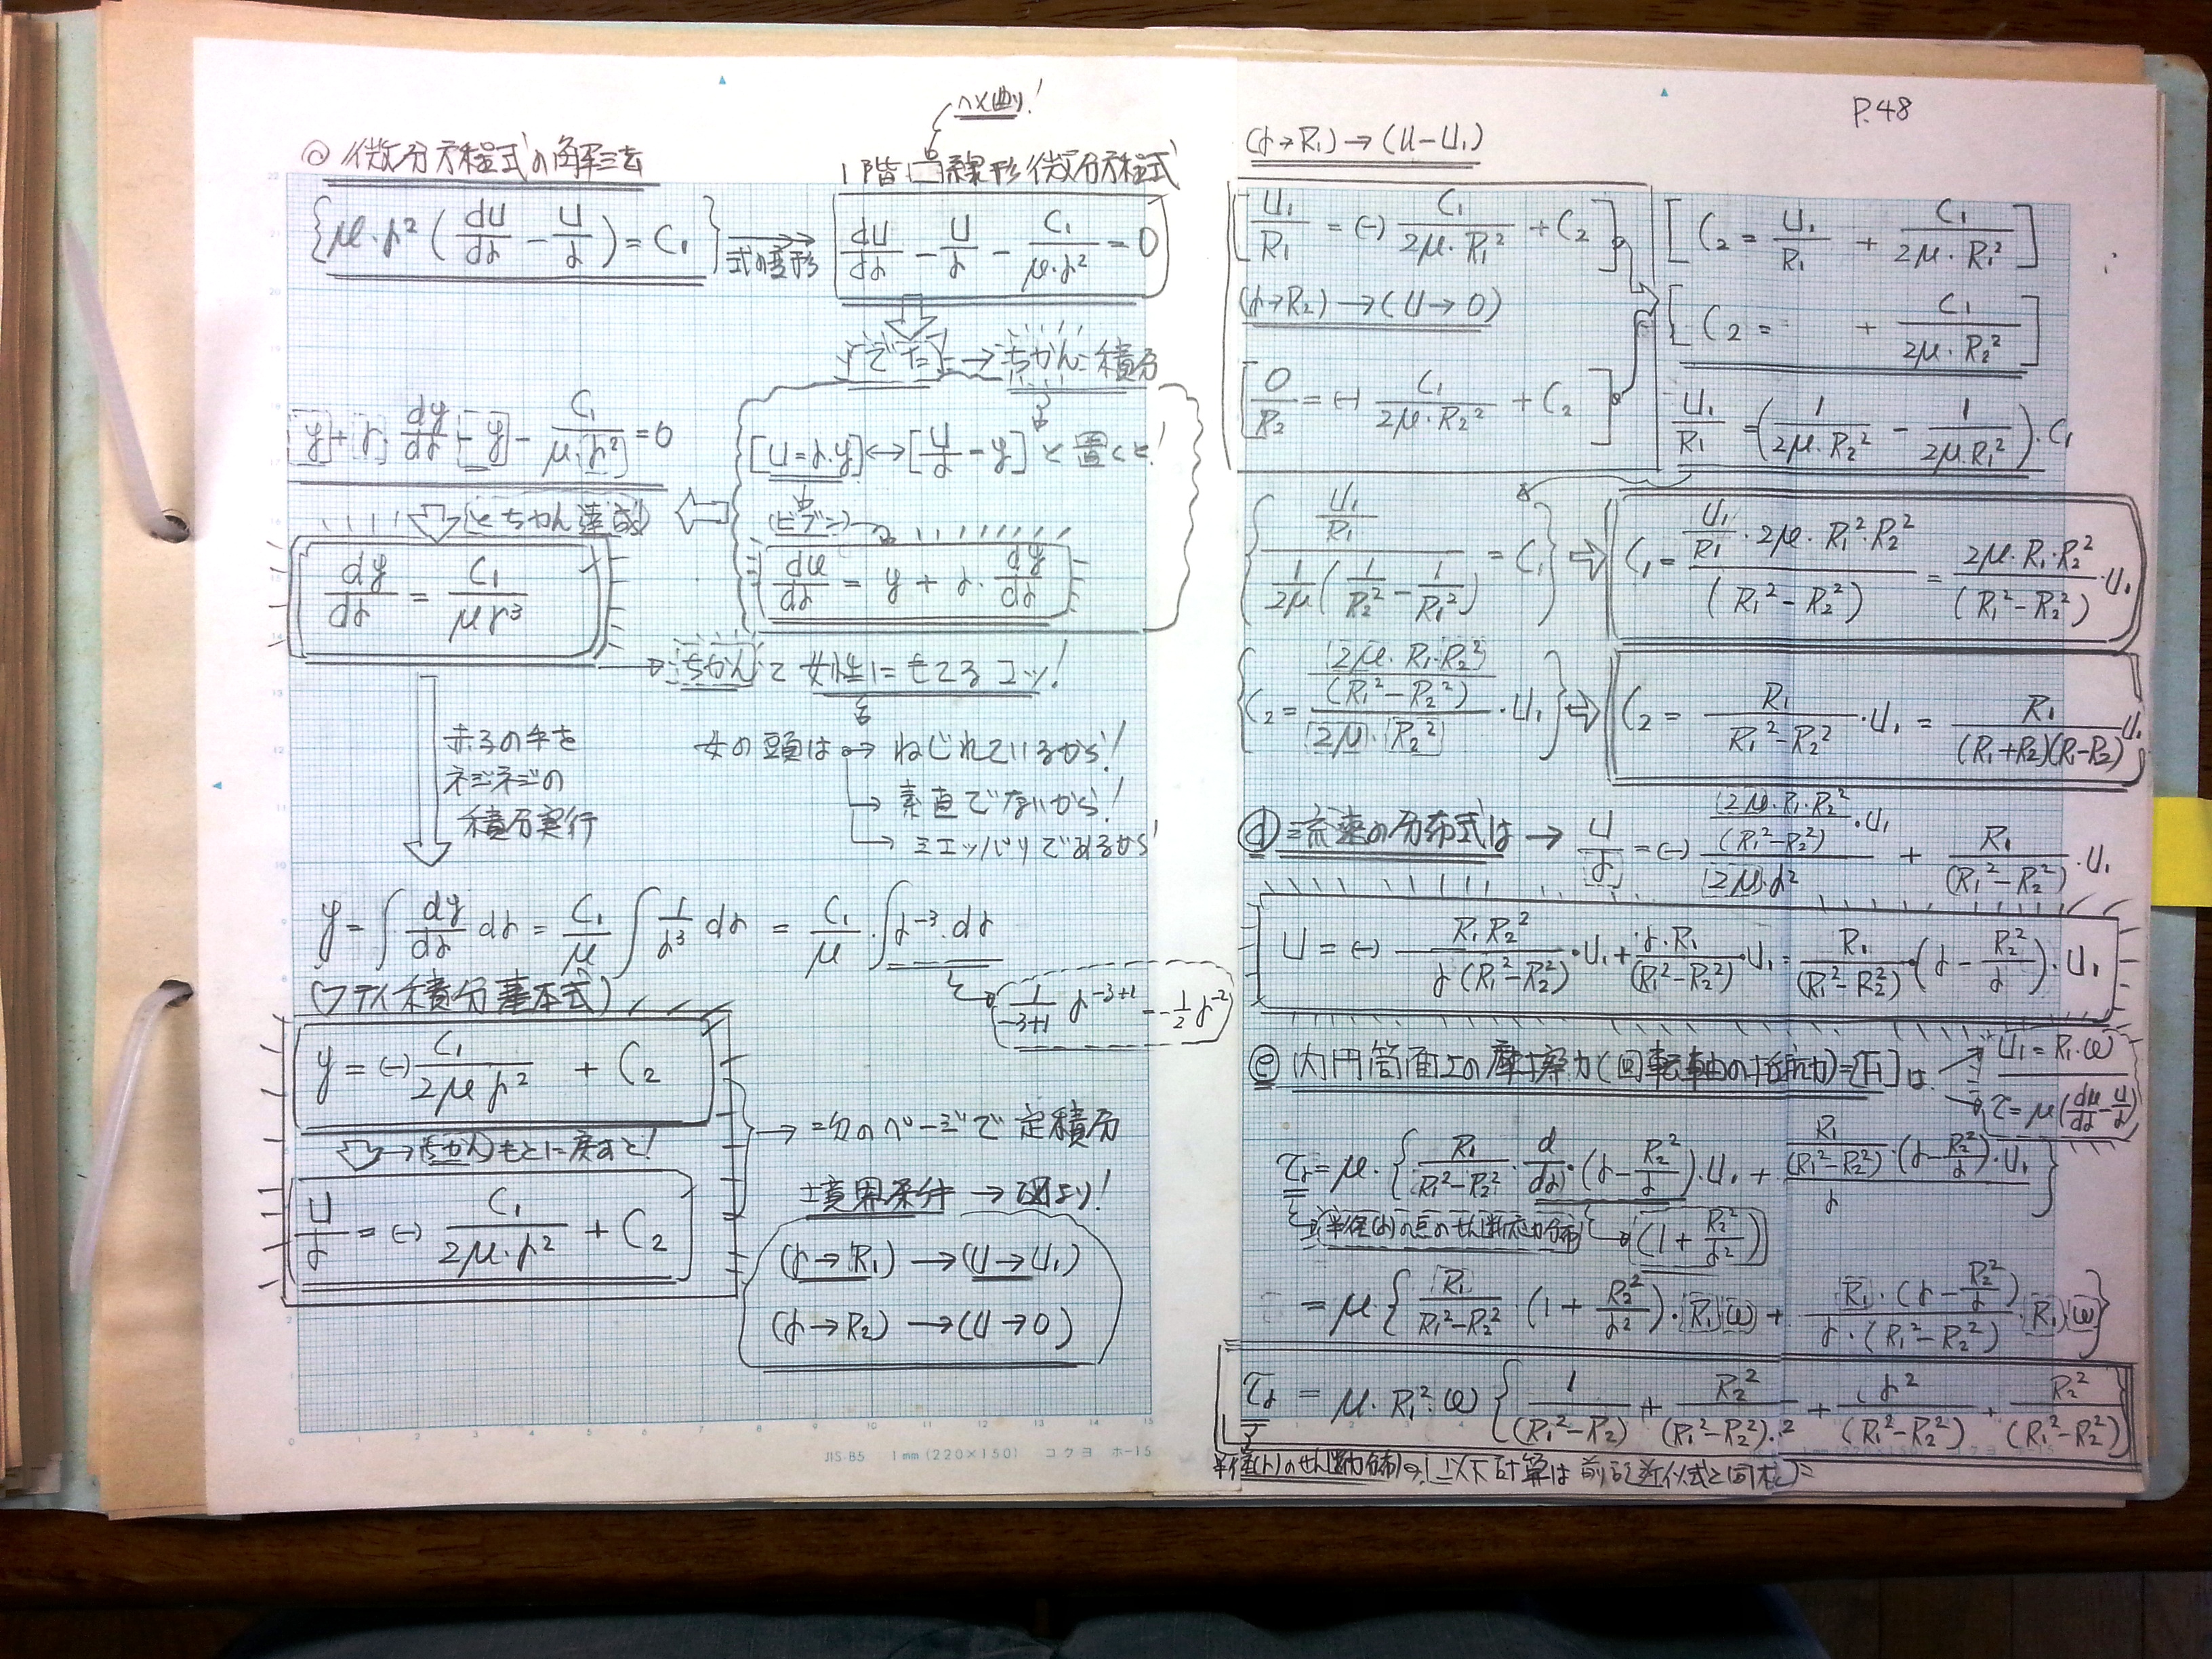 ◎ 微分方程式の解法
1階 線形微分方程式
{μ・r²(du/dr − u/r) = C₁}
式の変形
du/dr − u/r − C₁/(μ・r²) = 0
でた → ちかん積分
[y] + [r] dy/dr [−y] − C₁/(μ[r²]) = 0
[u = r・y] ↔ [u/r = y] と置くと!
ちかん達成
(ビブン)
dy/dr = C₁/(μr³)
du/dr = y + r・dy/dr
→ ちかんで女性にもてるコツ!
女の頭は → ねじれているから!
→ 素直でないから!
→ ミエッパリであるから
ネジネジの
積分実行
y = ∫ dy/dr dr = C₁/μ ∫ 1/r³ dr = C₁/μ・∫ r⁻³・dr
(フテイ積分基本式)
1/(−3+1) r⁻³⁺¹ = −1/2 r⁻²
y = (−) C₁/(2μr²) + C₂
→ ちかんもとに戻すと!
u/r = (−) C₁/(2μ・r²) + C₂
→ 次のページで定積分
境界条件 → 図より!
(r→R₁) → (u→U₁)
(r→R₂) → (u→0)
P.48
(r→R₁) → (u−U₁)
[U₁/R₁ = (−) C₁/(2μ・R₁²) + C₂]
[C₂ = U₁/R₁ + C₁/(2μ・R₁²)]
(r→R₂) → (u→0)
[C₂ = + C₁/(2μ・R₂²)]
[0/R₂ = (−) C₁/(2μ・R₂²) + C₂]
U₁/R₁ = (1/(2μ・R₂²) − 1/(2μ・R₁²))・C₁
{(U₁/R₁)/(1/2μ(1/R₂² − 1/R₁²)) = C₁} ⇨ C₁ = (U₁/R₁・2μ・R₁²・R₂²)/(R₁² − R₂²) = (2μ・R₁・R₂²)/(R₁² − R₂²)・U₁
{C₂ = ((2μ・R₁・R₂²)/(R₁² − R₂²))/(2μ・R₂²)・U₁} ⇨ C₂ = R₁/(R₁² − R₂²)・U₁ = R₁/((R₁+R₂)(R₁−R₂)) U₁
ⓓ 流速の分布式は → u/r = (−) ((2μ・R₁・R₂²)/(R₁² − R₂²)・U₁)/(2μ・r²) + R₁/(R₁² − R₂²)・U₁
u = (−) R₁R₂²/(r(R₁² − R₂²))・U₁ + r・R₁/(R₁² − R₂²)・U₁ = R₁/(R₁² − R₂²)・(r − R₂²/r)・U₁
ⓔ 内円筒面上の摩擦力(回転軸の抵抗力)=[F]は
U₁ = R₁・ω
τ = μ(du/dr − u/r)
τr = μ・{R₁/(R₁² − R₂²)・d/dr・(r − R₂²/r)・U₁ + (R₁/(R₁² − R₂²)・(r − R₂²/r)・U₁)/r}
半径(r)の点のせん断応力分布
(1 + R₂²/r²)
= μ・{R₁/(R₁² − R₂²)・(1 + R₂²/r²)・R₁ω + R₁・(r − R₂²/r)/(r・(R₁² − R₂²))・R₁ω}
τr = μ・R₁²・ω {1/(R₁² − R₂) + R₂²/(R₁² − R₂²)・² + r²/(R₁² − R₂²) + R₂²/(R₁² − R₂²)}
以下計算は前記近似式と同様に
JIS-B5 1mm(220×150) コクヨ ホ-15